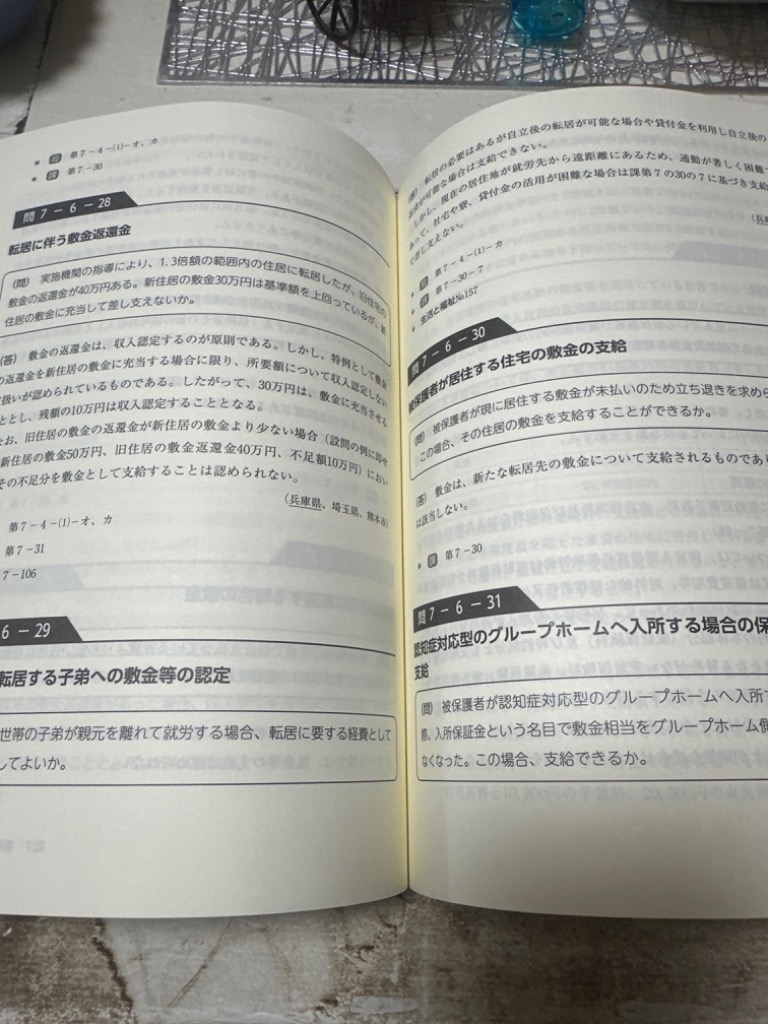 ● 局 第7－4－(1)－オ、カ
● 課 第7－30
問7－6－28
転居に伴う敷金返還金
(問) 実施機関の指導により、1.3倍額の範囲内の住居に転居したが、旧住宅の
敷金の返還金が40万円ある。新住居の敷金30万円は基準額を上回っているが、新
住居の敷金に充当して差し支えないか。
(答) 敷金の返還金は、収入認定するのが原則である。しかし、特例として敷金
の返還金を新住居の敷金に充当する場合に限り、所要額について収入認定しない
扱いが認められているものである。したがって、30万円は、敷金に充当させる
ととし、残額の10万円は収入認定することとなる。
なお、旧住居の敷金の返還金が新住居の敷金より少ない場合（設問の例に即せ
新住居の敷金50万円、旧住居の敷金返還金40万円、不足額10万円）におい
その不足分を敷金として支給することは認められない。
（兵庫県、埼玉県、熊本市）
第7－4－(1)－オ、カ
第7－31
7－106
6－29
転居する子弟への敷金等の認定
世帯の子弟が親元を離れて就労する場合、転居に要する経費として
してよいか。
(答) 転居の必要はあるが自立後の転居が可能な場合や貸付金を利用し自立後の
が可能な場合は支給できない。
しかし、現在の居住地が就労先から遠距離にあるため、通勤が著しく困難
あって、社宅や寮、貸付金の活用が困難な場合は課第7の30の7に基づき支給
て差し支えない。
（兵
● 局 第7－4－(1)－カ
● 課 第7－30－7
● 生活と福祉№157
問7－6－30
被保護者が居住する住宅の敷金の支給
(問) 被保護者が現に居住する敷金が未払いのため立ち退きを求めら
この場合、その住居の敷金を支給することができるか。
(答) 敷金は、新たな転居先の敷金について支給されるものであり
は該当しない。
● 課 第7－30
問7－6－31
認知症対応型のグループホームへ入所する場合の保
支給
(問) 被保護者が認知症対応型のグループホームへ入所す
際、入所保証金という名目で敷金相当をグループホーム側
なくなった。この場合、支給できるか。